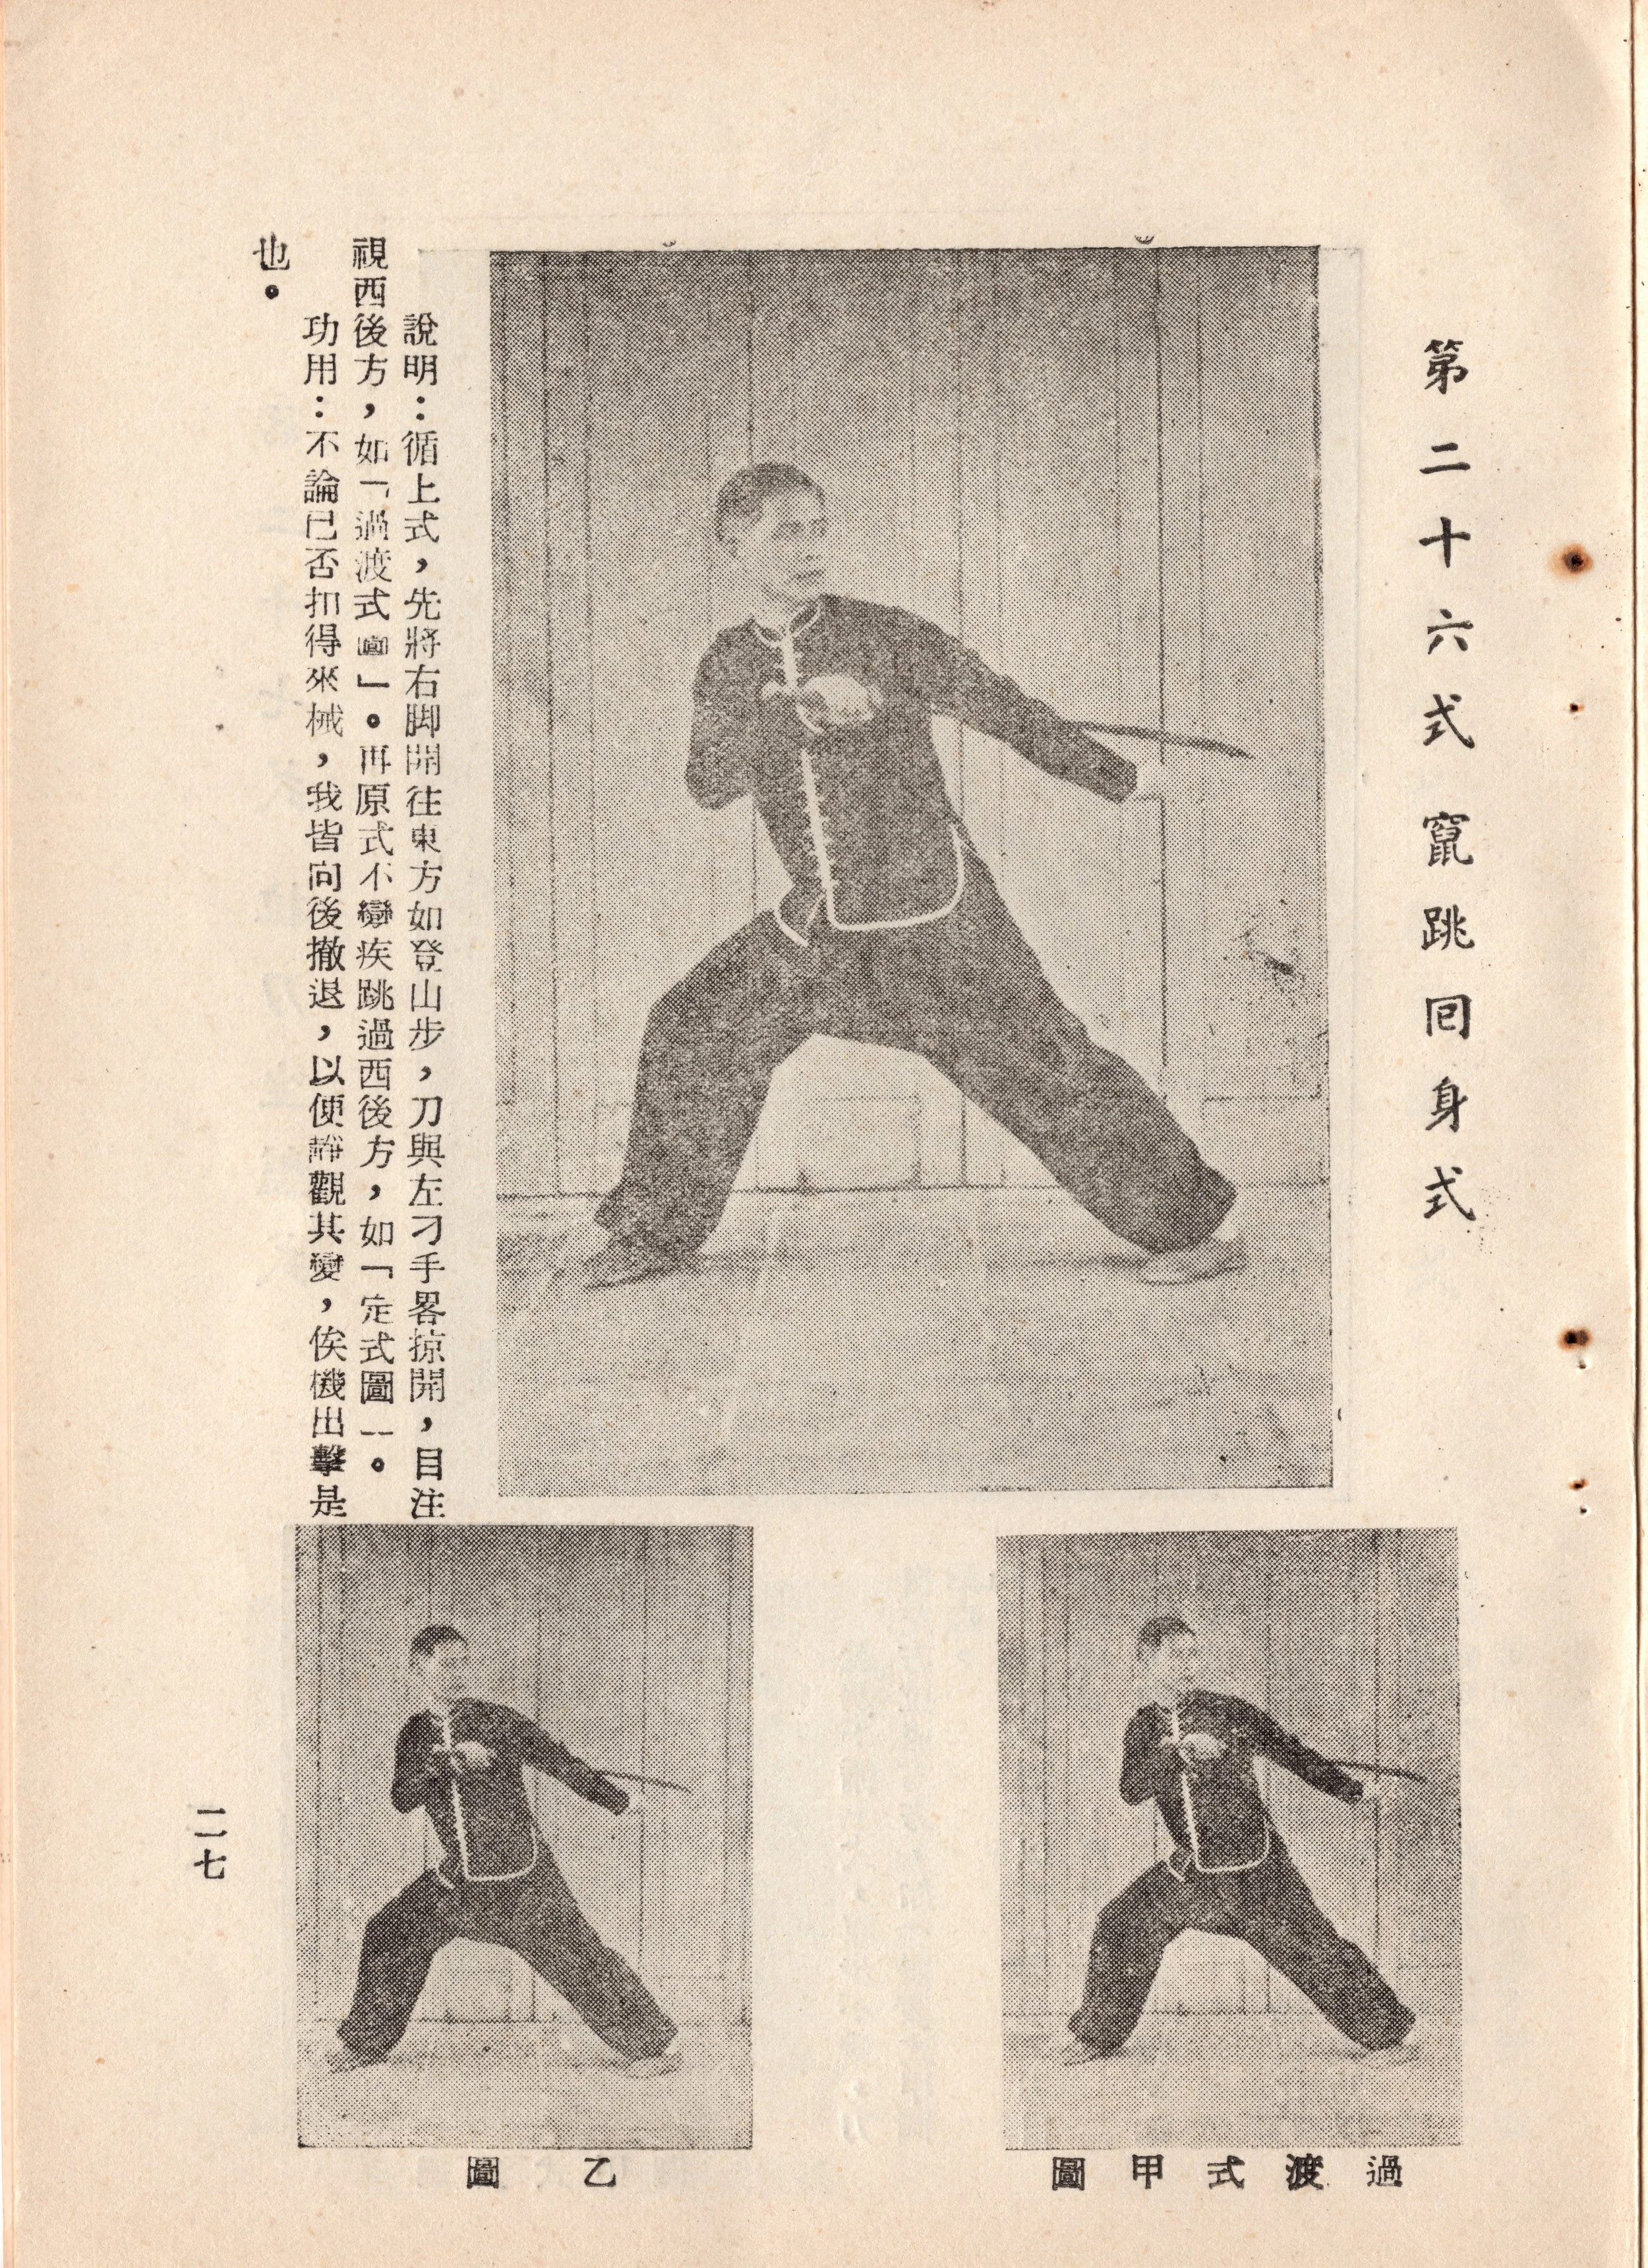 第二十六式竄跳回身式
說明：循上式，先將右脚開往東方如登山步，刀與左刁手畧掠開，目注
視西後方，如「過渡式圖」。再原式不變疾跳過西後方，如「定式圖」。
功用：不論已否扣得來械，我皆向後撤退，以便靜觀其變，俟機出擊是
也。
過渡式甲圖
乙圖
二七